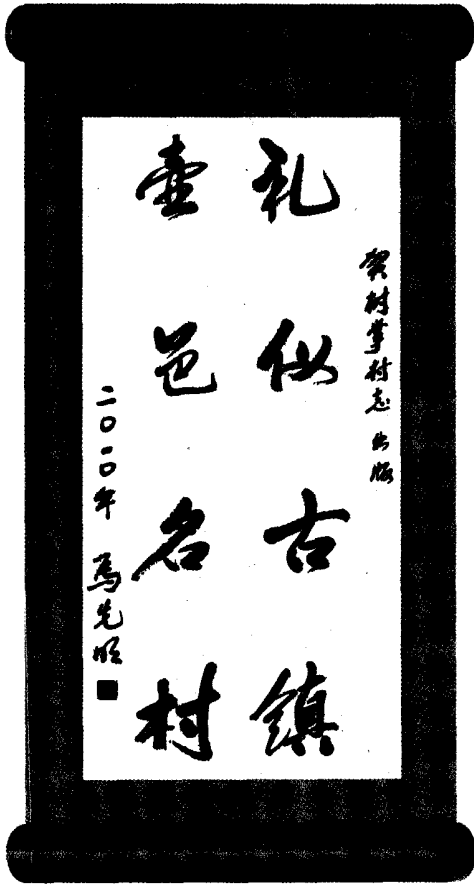 贺树掌村志 出版
礼仪古镇
壶邑名村
二〇一〇年 馬先明